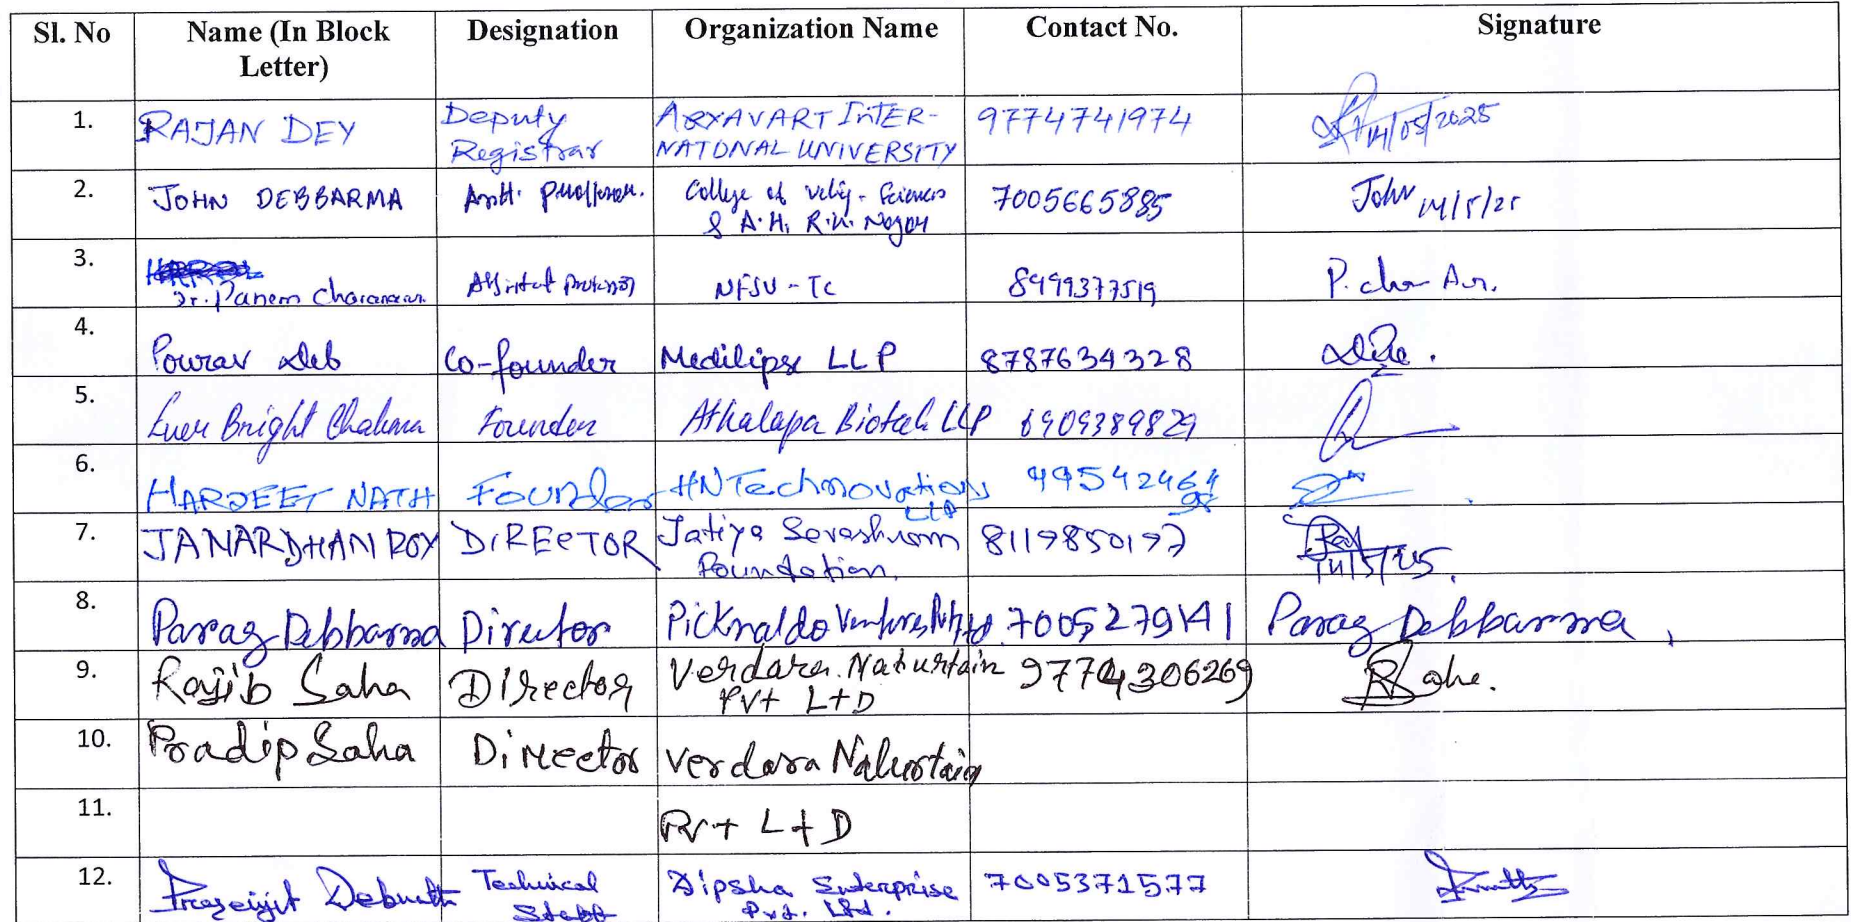 Sl. No Name (In Block Letter) Designation Organization Name Contact No. Signature
1. RAJAN DEY Deputy Registrar ARYAVART INTER-NATONAL UNIVERSITY 9774741974 14/05/2025
2. JOHN DEBBARMA Asstt. Professor. College of Sciences & A.H. R.K. Nagar 7005665885 John 14/5/25
3. Dr. Panem NFSU-TC 8499377519 P.
4. Pourav Deb Co-founder Medilipse LLP 8787634328
5. Ever Bright Chakma Founder Athalapa Biotech LLP 6909389829
6. HARJEET NATH Founder HN Technovations LLP
7. JANARDHAN ROY DIRECTOR Jatiya Sevashram Foundation. 8119850197
8. Parag Debbarma Director Picknaldo Ventures 7005279141 Parag Debbarma
9. Rajib Saha Director Verdara Naturtain Pvt LtD 9774306269 RSaha.
10. Pradip Saha Director Verdara Naturtain
11. Pvt LtD
12. Debnath Technical Staff Dipsha Enterprise Pvt. Ltd. 7005371577